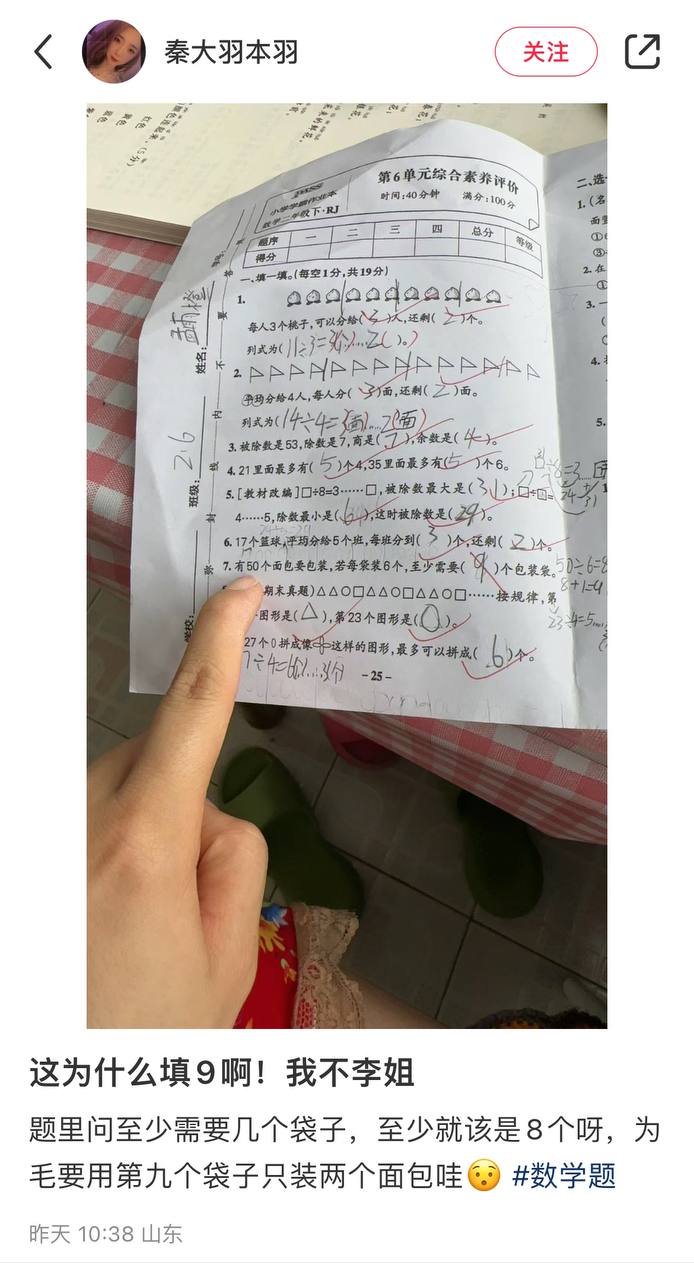 秦大羽本羽
关注
PASS
小学学霸作业本
数学二年级下·RJ
第6单元综合素养评价
时间:40分钟 满分:100分
题序 一 二 三 四 总分 等级
得分
一、填一填。(每空1分,共19分)
1.
每人3个桃子,可以分给(3)人,还剩(2)个。
列式为(11÷3=3(个)……2( )。)
2.
平均分给4人,每人分(3)面,还剩(2)面。
列式为(14÷4=3(面)……2(面)
3.被除数是53,除数是7,商是(7),余数是(4)。
4.21里面最多有(5)个4,35里面最多有(5)个6。
5.[教材改编]□÷8=3……□,被除数最大是(31);□÷□=
4……5,除数最小是(6),这时被除数是(29)。
6.17个篮球,平均分给5个班,每班分到(3)个,还剩(2)个。
7.有50个面包要包装,若每袋装6个,至少需要(9)个包装袋。
50÷6=8
8+1=9
期末真题)△△○□△△○□△△○□……按规律,第
图形是(△),第23个图形是(○)。
23÷4=5
27个0拼成像 这样的图形,最多可以拼成(6)个。
7÷4=6(个)……3(个)
-25-
学校:
班级: 2.6
姓名:
二、选
1.(名
面
①
③
2.在
①
3.一
(
4.
5.
这为什么填9啊！我不李姐
题里问至少需要几个袋子，至少就该是8个呀，为
毛要用第九个袋子只装两个面包哇😯 #数学题
昨天 10:38 山东